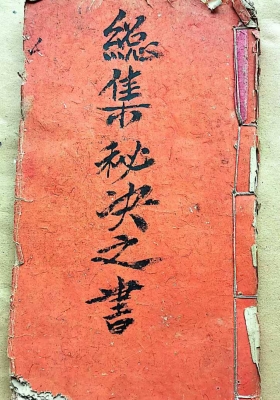 總集秘决之書